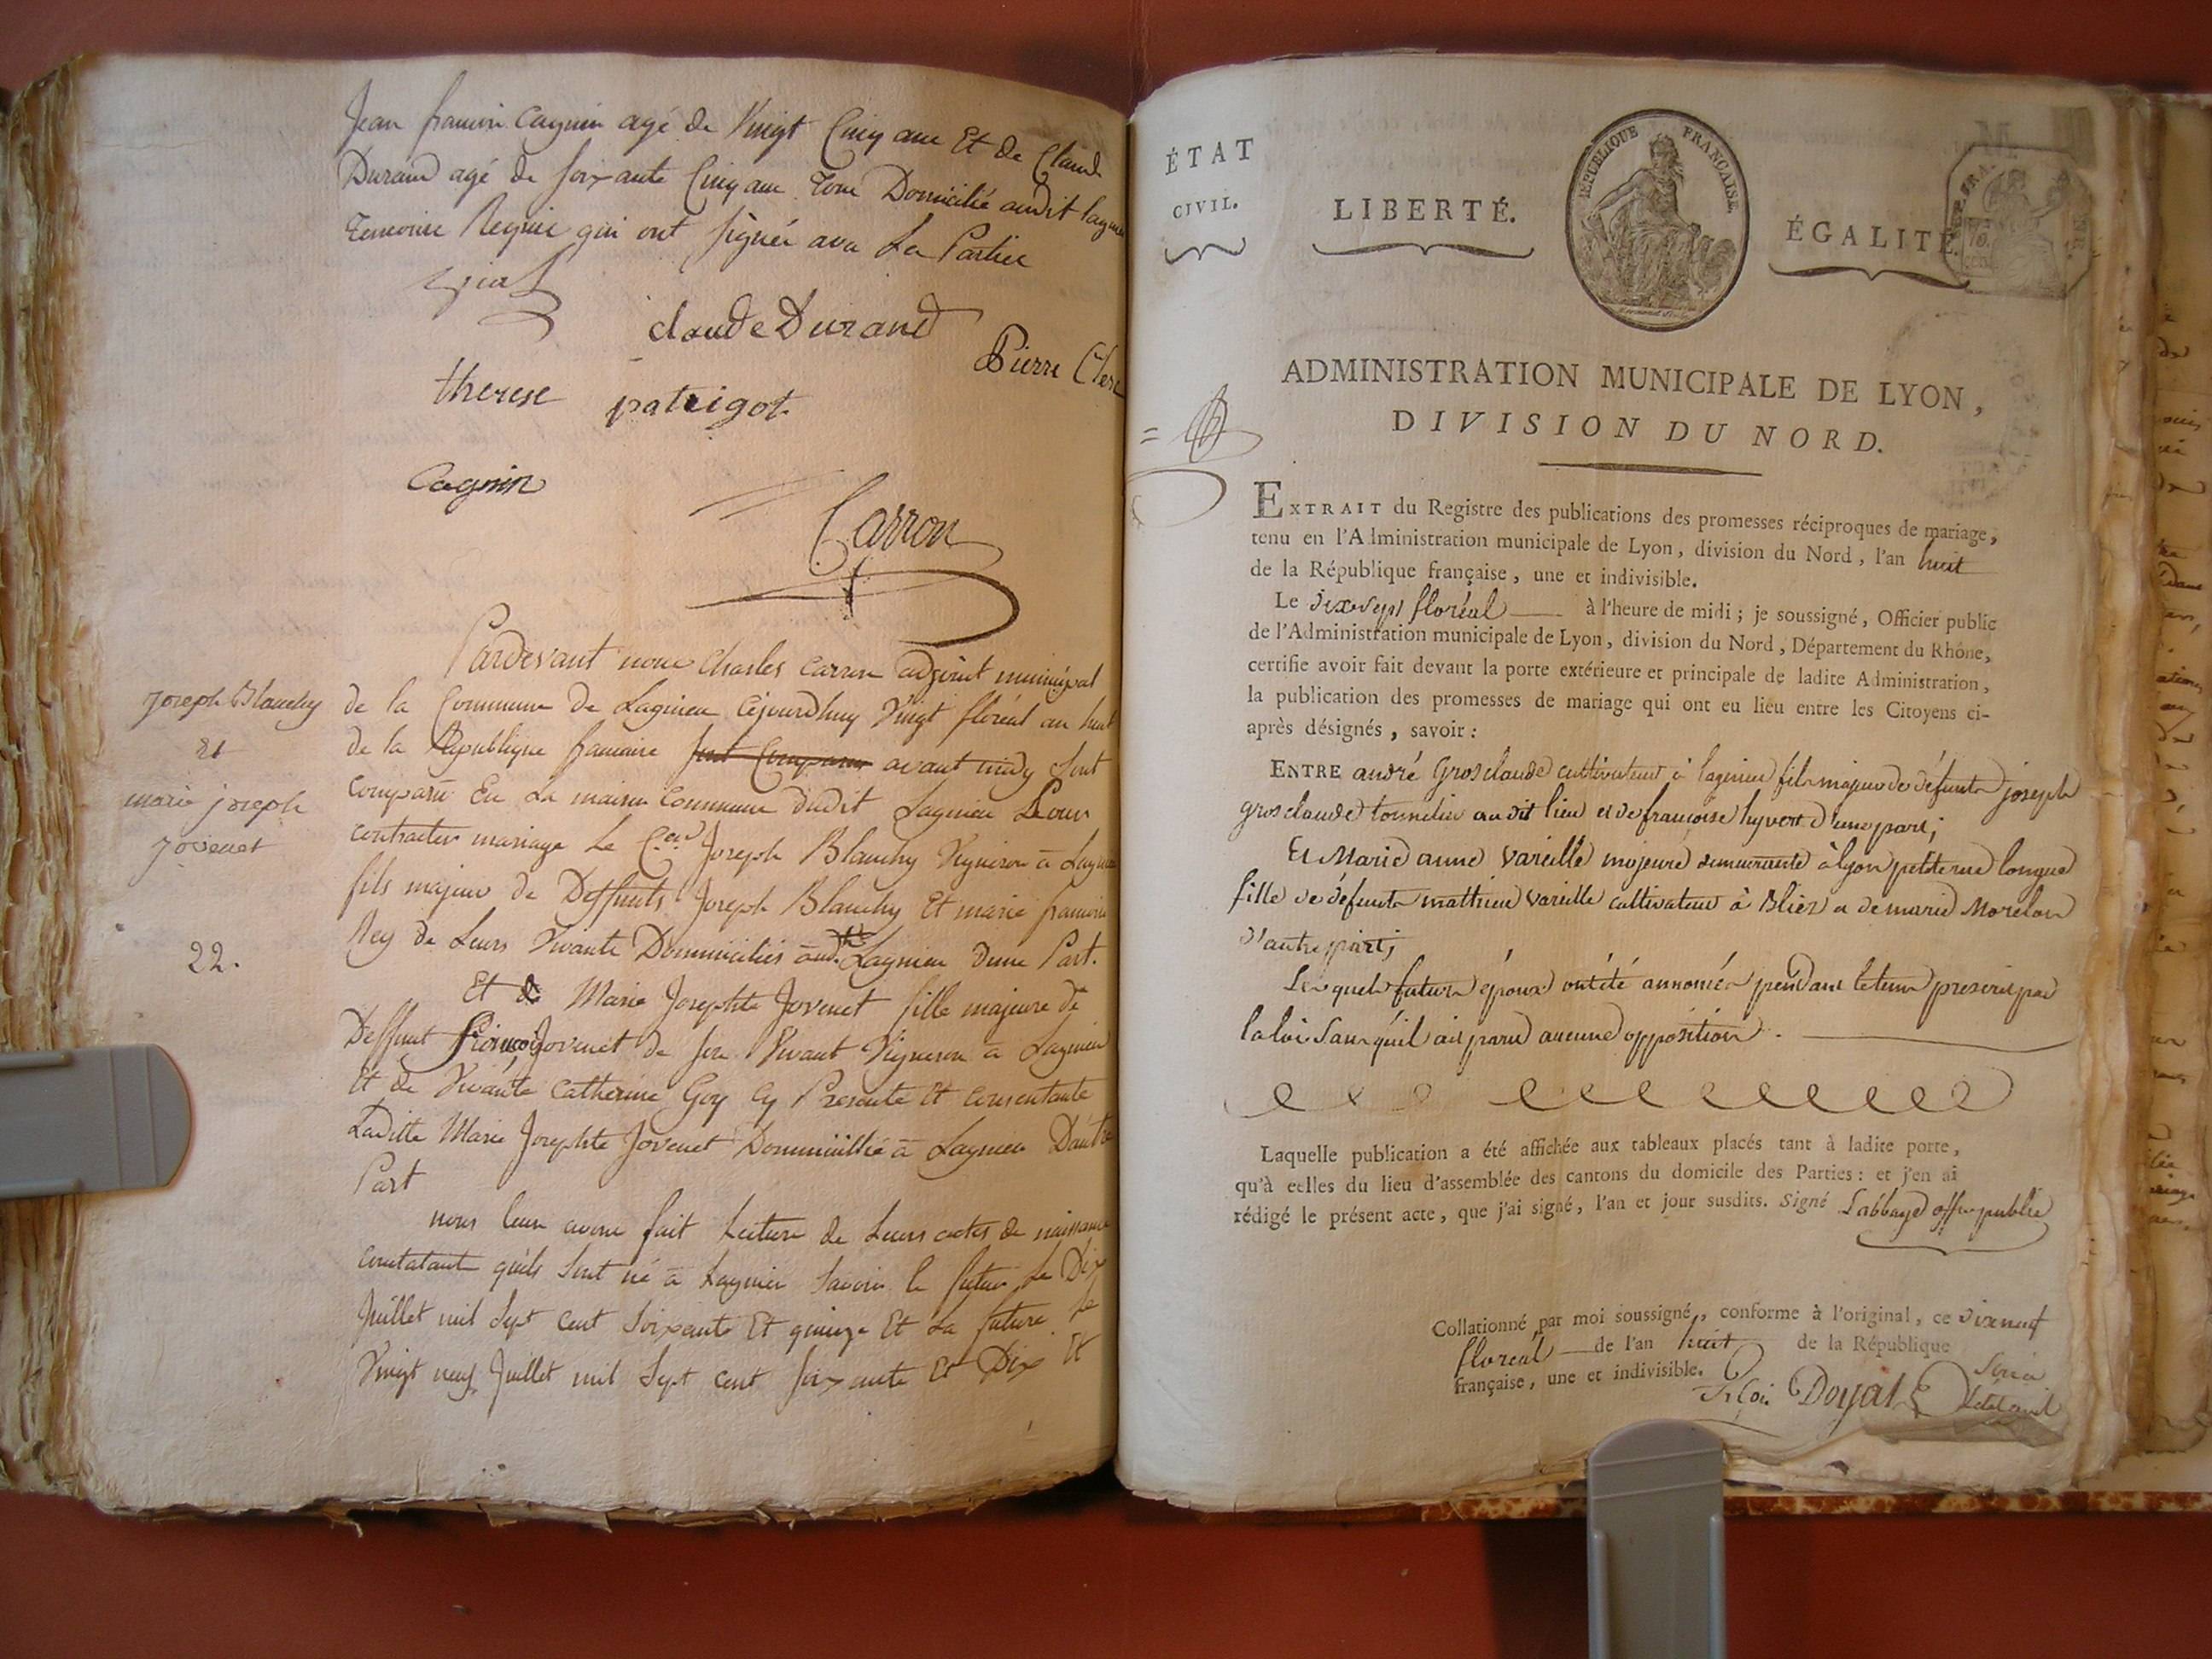 Jean francoi Cagnin agé de Vingt Cinq ans Et de Claude
Durand agé de soixante Cinq ans tous Domicilié audit lagnieu
temoins Requis qui ont signés avec Les Parties
claude Durand
Pierre Clerc
therese patrigot
Cagnin
Carron
Pardevant nous Charles Carron adjoint municipal
de la Commune de Lagnieu Cejourdhuy Vingt floréal an huit
de la Republique francaise sont Comparus avant midy sont
comparu En La maison Commune dudit Lagnieu Pour
contracter mariage Le Cen Joseph Blanchy Vigneron a Lagnieu
fils majeur de Deffunts Joseph Blanchy Et marie francoise
Rey de Leurs Vivants Domiciliés aud. Lagnieu Dune Part.
Et de Marie Josephte Jovenet fille majeure de
Deffunt François Jovenet de son Vivant Vigneron a Lagnieu
Et de Vivante Catherine Goy Cy Presente Et consentante
Laditte Marie Josephte Jovenet Domicilliée a Lagnieu Dautre
Part
nous leur avons fait Lecture de Leurs actes de naissance
constatant quils sont né a Lagnieu savoir le futur Le Dix
Juillet mil Sept cent soixante Et quinze Et La future le
Vingt neuf Juillet mil Sept cent soixante Et Dix Et
Joseph Blanchy
Et
marie joseph
jovenet
22.
ÉTAT
CIVIL.
LIBERTÉ.
RÉPUBLIQUE FRANÇAISE.
ÉGALITÉ.
ADMINISTRATION MUNICIPALE DE LYON,
DIVISION DU NORD.
EXTRAIT du Registre des publications des promesses réciproques de mariage,
tenu en l'Administration municipale de Lyon, division du Nord, l'an huit
de la République française, une et indivisible.
Le dix-sept floréal à l'heure de midi; je soussigné, Officier public
de l'Administration municipale de Lyon, division du Nord, Département du Rhône,
certifie avoir fait devant la porte extérieure et principale de ladite Administration,
la publication des promesses de mariage qui ont eu lieu entre les Citoyens ci-
après désignés, savoir:
ENTRE andré Grosclaude cultivateur à lagnieu fils majeur de défunts joseph
grosclaude tonnelier audit lieu et de francoise hyvert d'une part;
Et Marie anne Vareille majeure demeurante à lyon petite rue longue
fille de défunts mathieu Vareille cultivateur à Bliez et de marie Morelon
d'autre part;
Lesquels futurs époux ont été annoncés pendant le tems prescrit par
la loi sans qu'il ait paru aucune opposition.
Laquelle publication a été affichée aux tableaux placés tant à ladite porte,
qu'à celles du lieu d'assemblée des cantons du domicile des Parties: et j'en ai
rédigé le présent acte, que j'ai signé, l'an et jour susdits. Signé Labbaye offer public
Collationné par moi soussigné, conforme à l'original, ce dixneuf
floreal de l'an huit de la République
française, une et indivisible.
Doyat